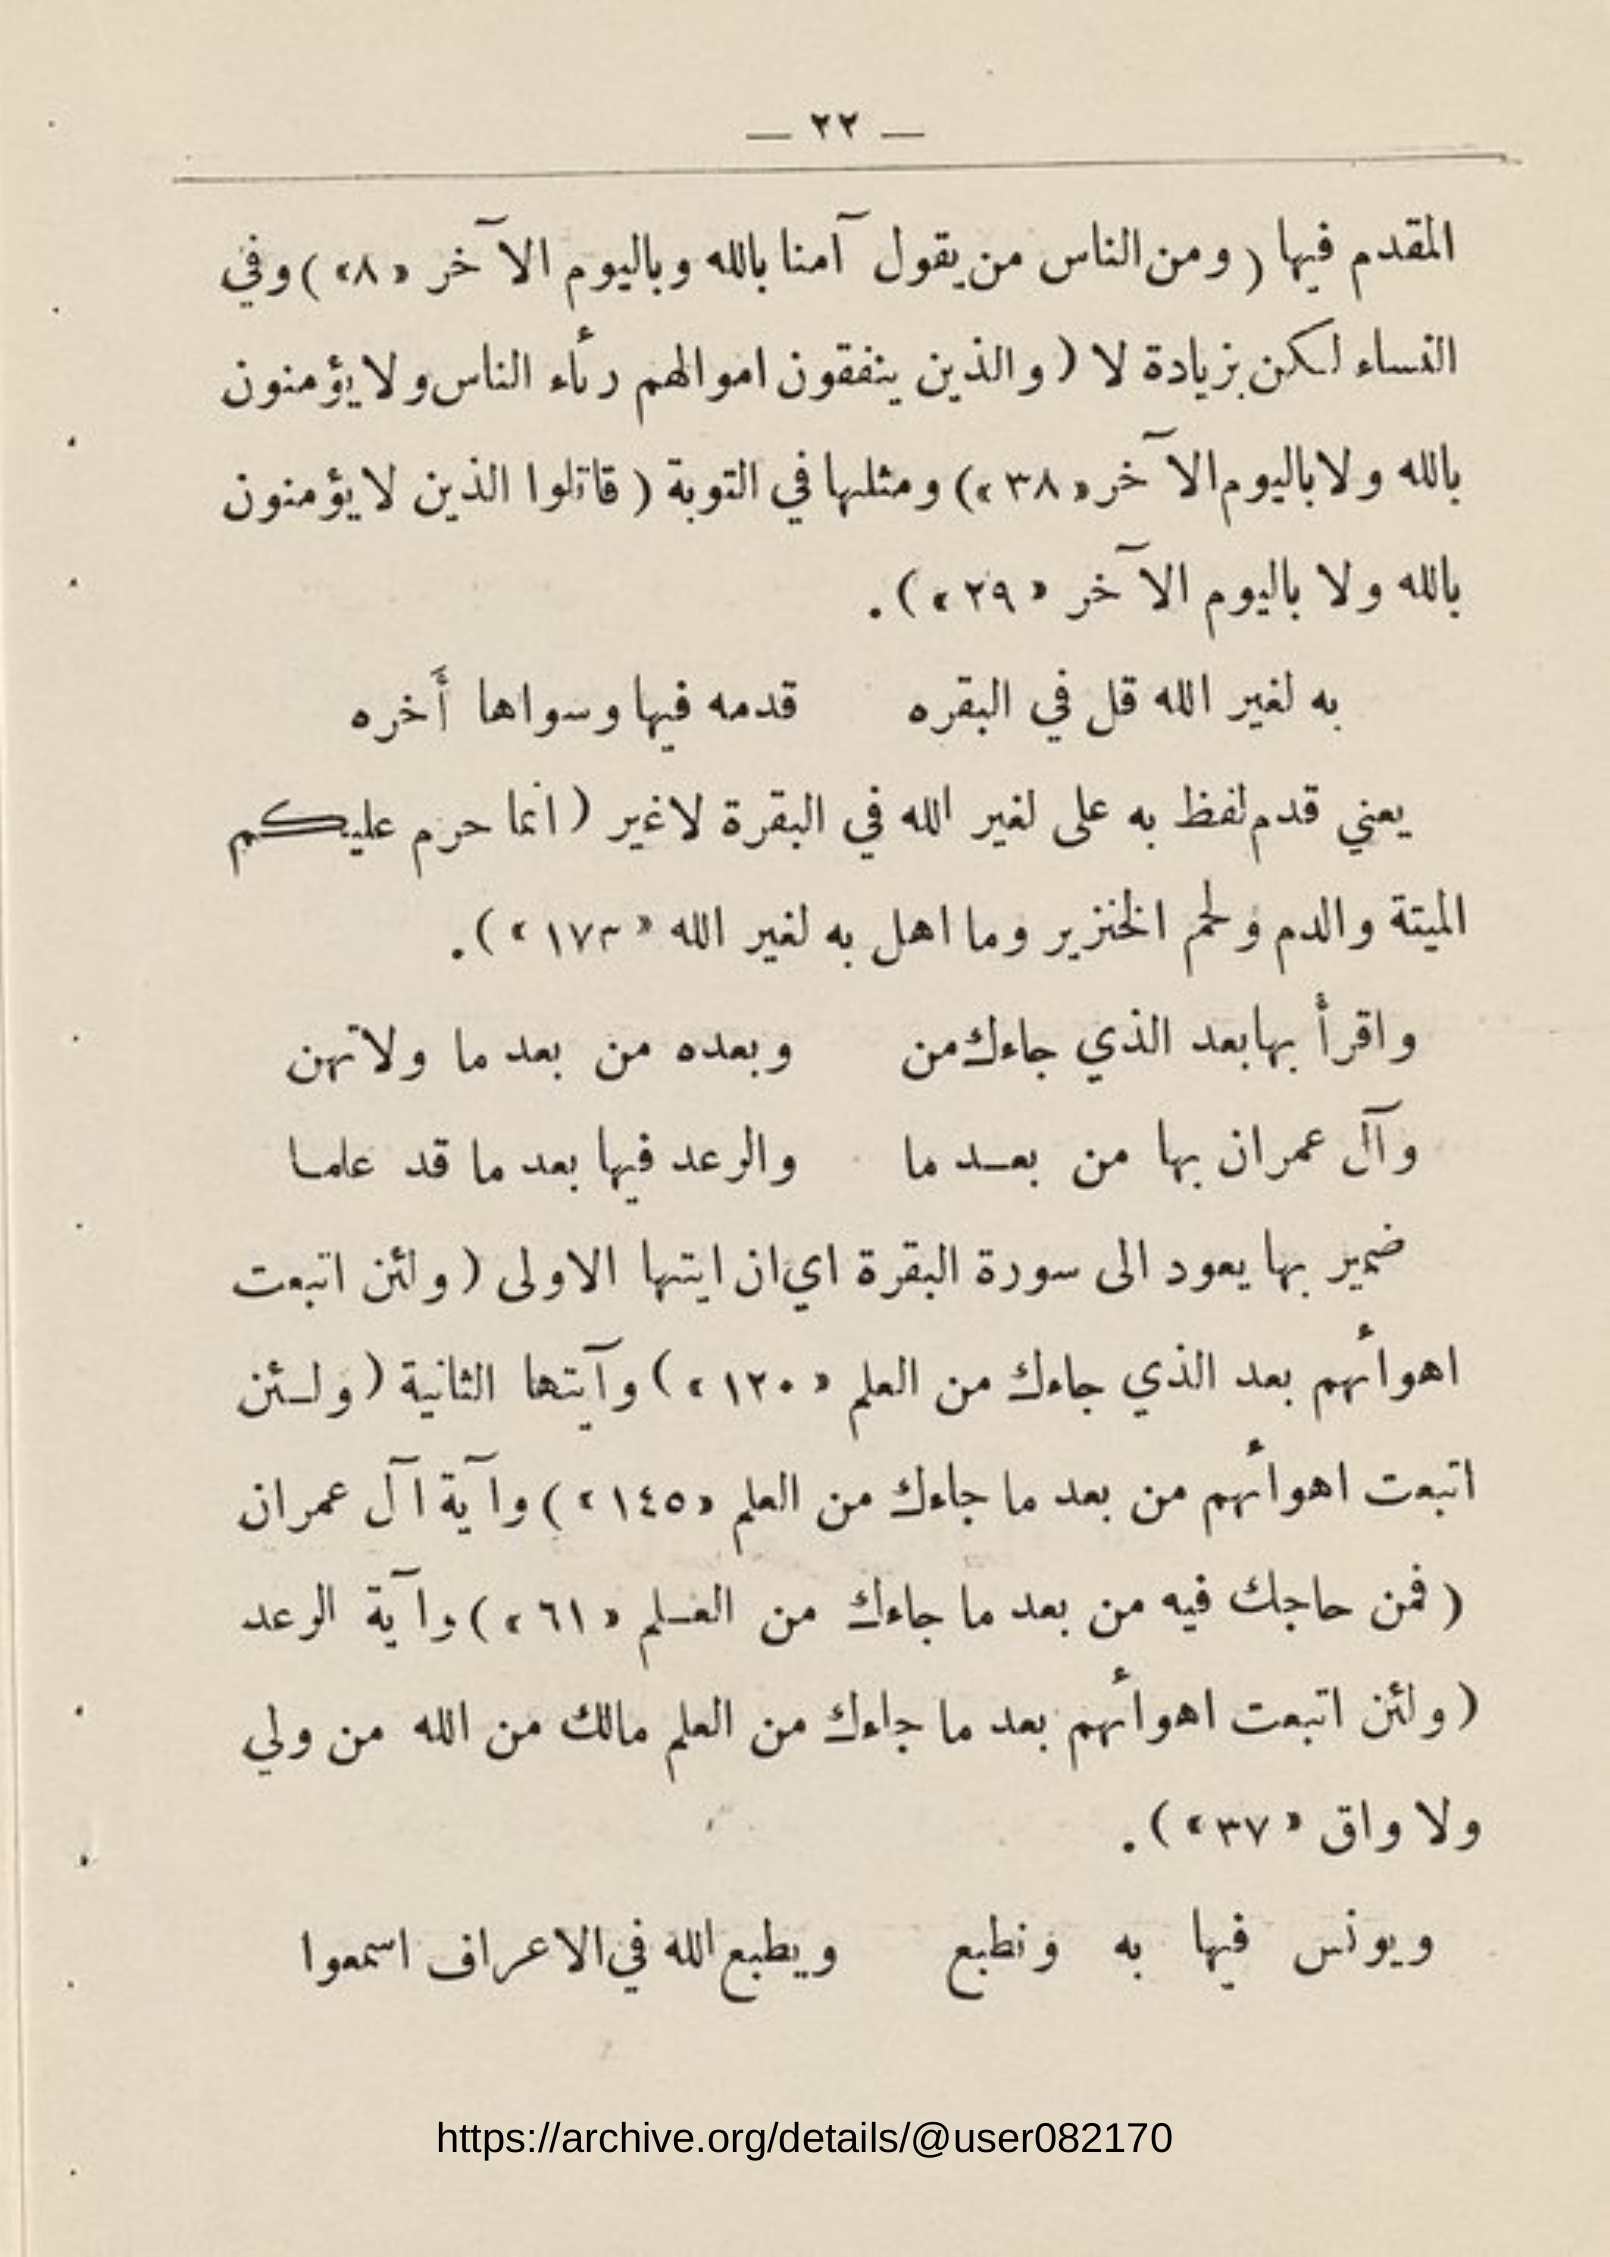 — ٢٢ —
المقدم فيها ( ومن الناس من يقول آمنا بالله وباليوم الآخر «٨» ) وفي
النساء لكن بزيادة لا ( والذين ينفقون اموالهم رئاء الناس ولا يؤمنون
بالله ولا باليوم الآخر «٣٨» ) ومثلها في التوبة ( قاتلوا الذين لا يؤمنون
بالله ولا باليوم الآخر «٢٩» ) .
به لغير الله قل في البقره قدمه فيها وسواها أَخره
يعني قدم لفظ به على لغير الله في البقرة لاغير ( انما حرم عليكم
الميتة والدم ولحم الخنزير وما اهل به لغير الله «١٧٣» ) .
واقرأ بها بعد الذي جاءك من وبعده من بعد ما ولاتهن
وآل عمران بها من بعد ما والرعد فيها بعد ما قد علما
ضمير بها يعود الى سورة البقرة اي ان ايتها الاولى ( ولئن اتبعت
اهوائهم بعد الذي جاءك من العلم «١٢٠» ) وآيتها الثانية ( ولئن
اتبعت اهوائهم من بعد ما جاءك من العلم «١٤٥» ) وآية آل عمران
( فمن حاجك فيه من بعد ما جاءك من العلم «٦١» ) وآية الرعد
( ولئن اتبعت اهوائهم بعد ما جاءك من العلم مالك من الله من ولي
ولا واق «٣٧» ) .
ويونس فيها به ونطبع ويطبع الله في الاعراف اسمعوا
https://archive.org/details/@user082170